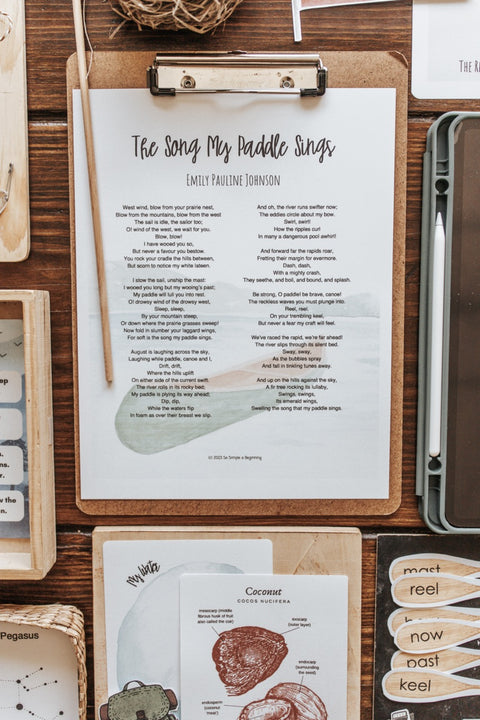 The Ra
The Song My Paddle Sings
Emily Pauline Johnson
West wind, blow from your prairie nest,
Blow from the mountains, blow from the west
The sail is idle, the sailor too;
O! wind of the west, we wait for you.
Blow, blow!
I have wooed you so,
But never a favour you bestow.
You rock your cradle the hills between,
But scorn to notice my white lateen.
I stow the sail, unship the mast:
I wooed you long but my wooing's past;
My paddle will lull you into rest.
O! drowsy wind of the drowsy west,
Sleep, sleep,
By your mountain steep,
Or down where the prairie grasses sweep!
Now fold in slumber your laggard wings,
For soft is the song my paddle sings.
August is laughing across the sky,
Laughing while paddle, canoe and I,
Drift, drift,
Where the hills uplift
On either side of the current swift.
The river rolls in its rocky bed;
My paddle is plying its way ahead;
Dip, dip,
While the waters flip
In foam as over their breast we slip.
And oh, the river runs swifter now;
The eddies circle about my bow.
Swirl, swirl!
How the ripples curl
In many a dangerous pool awhirl!
And forward far the rapids roar,
Fretting their margin for evermore.
Dash, dash,
With a mighty crash,
They seethe, and boil, and bound, and splash.
Be strong, O paddle! be brave, canoe!
The reckless waves you must plunge into.
Reel, reel.
On your trembling keel,
But never a fear my craft will feel.
We've raced the rapid, we're far ahead!
The river slips through its silent bed.
Sway, sway,
As the bubbles spray
And fall in tinkling tunes away.
And up on the hills against the sky,
A fir tree rocking its lullaby,
Swings, swings,
Its emerald wings,
Swelling the song that my paddle sings.
© 2023 So Simple a Beginning
ep
n.
ns.
m.
w the
n.
Pegasus
My Water
Coconut
COCOS NUCIFERA
mesocarp (middle
fibrous husk of fruit
also called the coir)
exocarp
(outer layer)
endocarp
(surrounding
of the seed)
endosperm
(coconut
meat)
mast
reel
now
past
keel